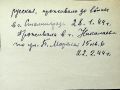 русская, проживала до войны
в г. Сталинграде 28.1.44.
Проживала в г. Николаеве
по ул. Б. Морская 15 кв. 6
22.2.44 г.